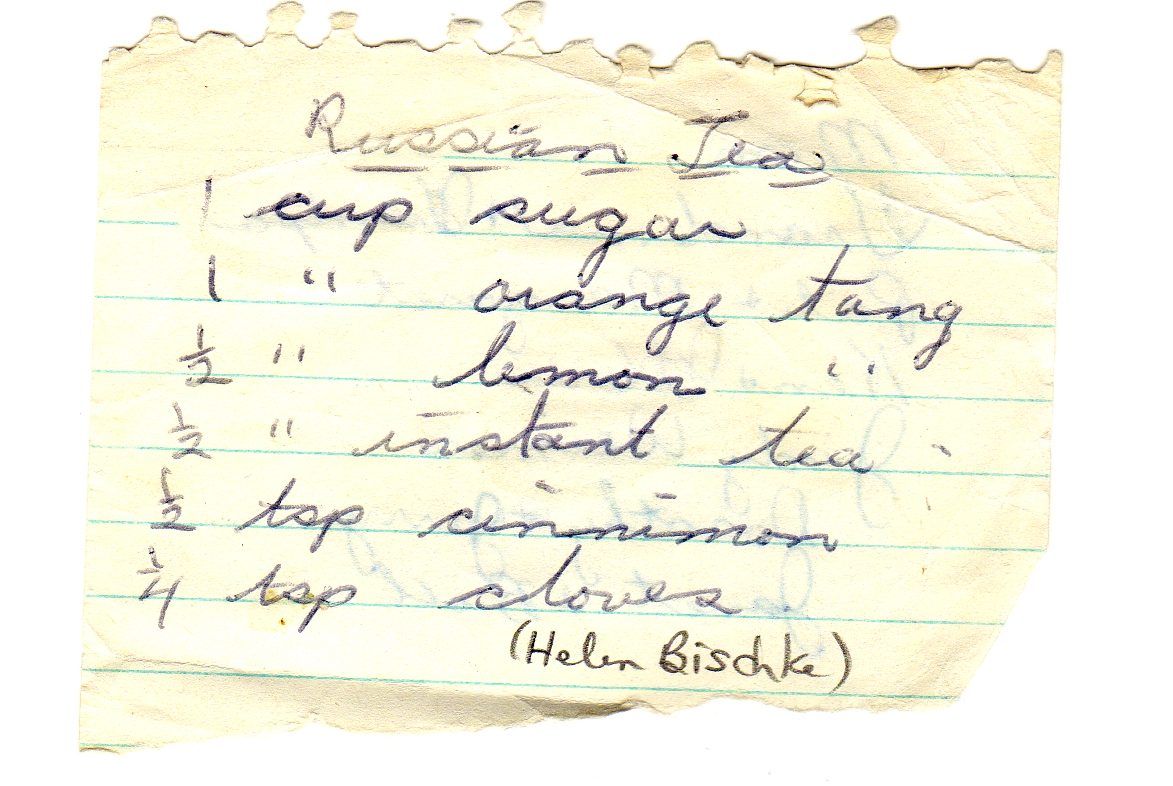 Russian Tea
1 cup sugar
1 " orange tang
½ " lemon "
½ " instant tea
½ tsp cinnimon
¼ tsp cloves
(Helen Bischke)